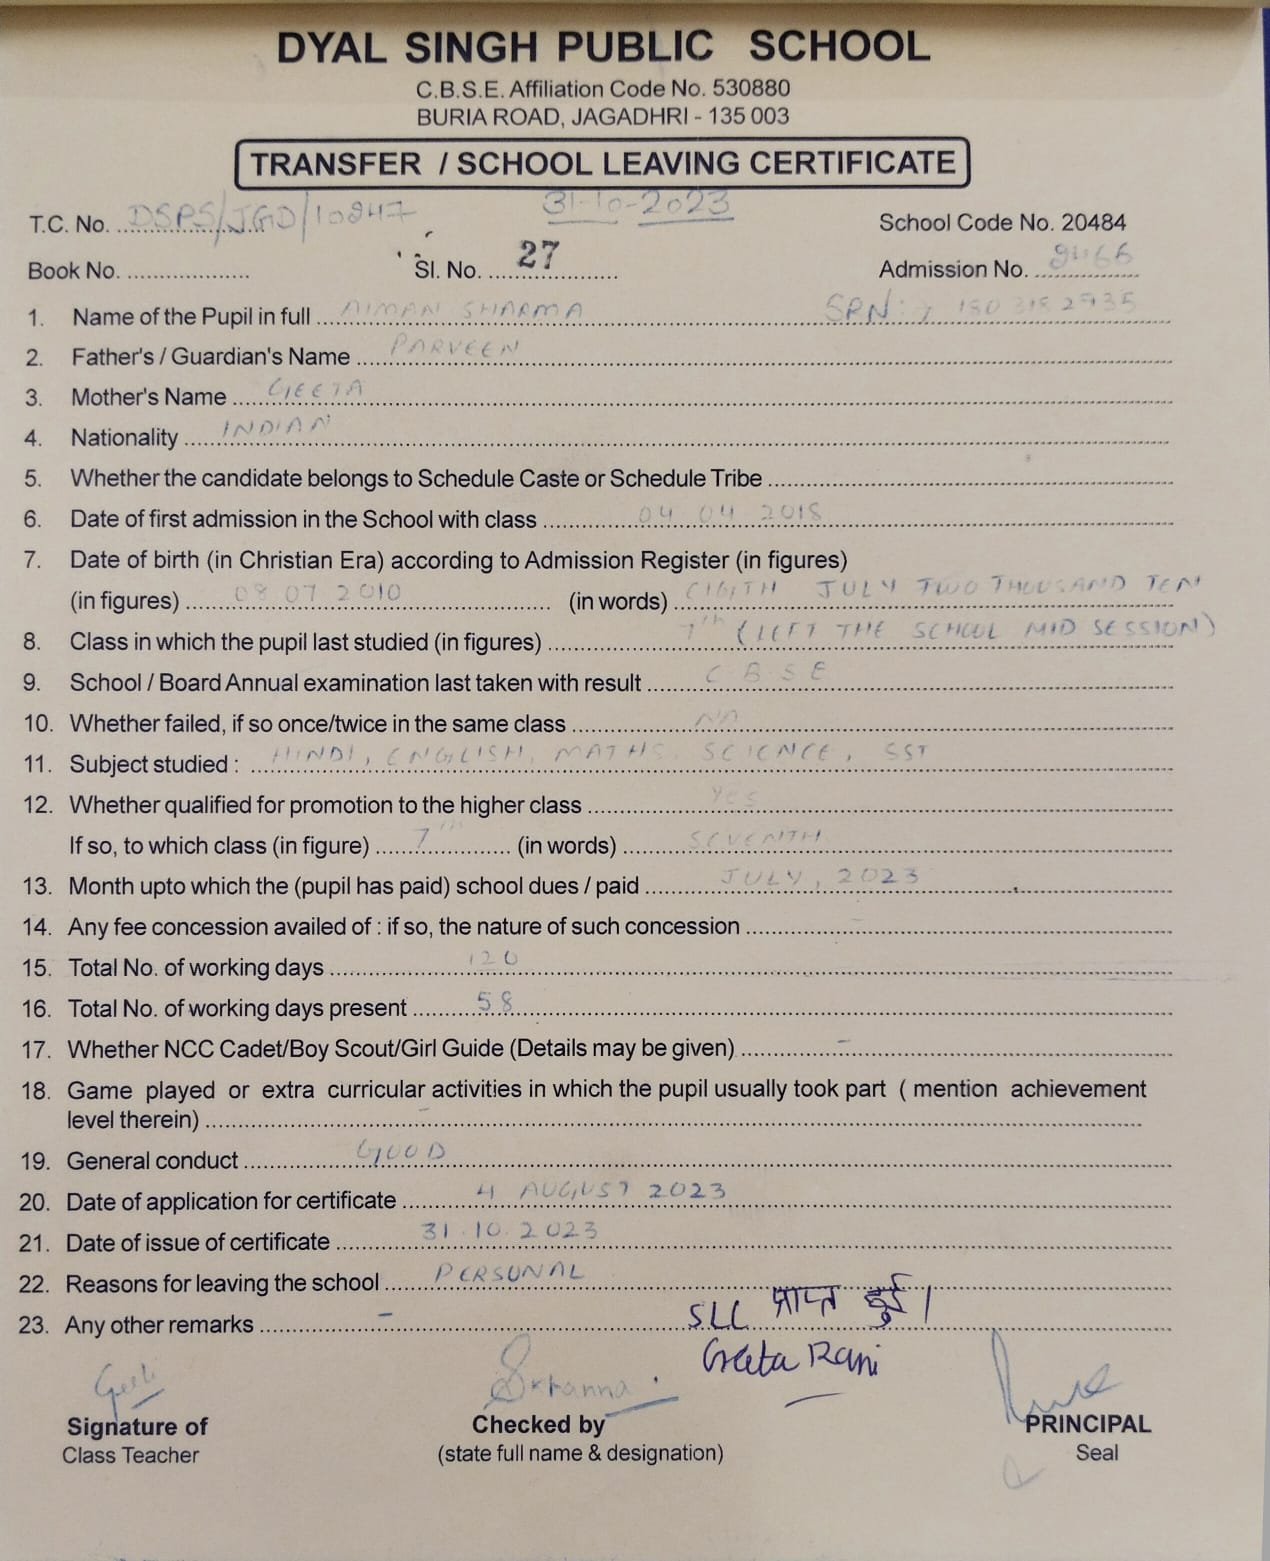 DYAL SINGH PUBLIC SCHOOL
C.B.S.E. Affiliation Code No. 530880
BURIA ROAD, JAGADHRI - 135 003
TRANSFER / SCHOOL LEAVING CERTIFICATE
31-10-2023
T.C. No. DSPS/JGD/10247 School Code No. 20484
Book No. Sl. No. 27 Admission No. 9466
1. Name of the Pupil in full AIMAN SHARMA SRN:
2. Father's / Guardian's Name PARVEEN
3. Mother's Name GEETA
4. Nationality INDIAN
5. Whether the candidate belongs to Schedule Caste or Schedule Tribe
6. Date of first admission in the School with class 04 04 2018
7. Date of birth (in Christian Era) according to Admission Register (in figures)
(in figures) 08 07 2010 (in words) EIGTH JULY TWO THOUSAND TEN
8. Class in which the pupil last studied (in figures) 7th (LEFT THE SCHOOL MID SESSION)
9. School / Board Annual examination last taken with result C B S E
10. Whether failed, if so once/twice in the same class NA
11. Subject studied : HINDI, ENGLISH, MATHS, SCIENCE, SST
12. Whether qualified for promotion to the higher class YES
If so, to which class (in figure) 7th (in words) SEVENTH
13. Month upto which the (pupil has paid) school dues / paid JULY, 2023
14. Any fee concession availed of : if so, the nature of such concession -
15. Total No. of working days 120
16. Total No. of working days present 58
17. Whether NCC Cadet/Boy Scout/Girl Guide (Details may be given) -
18. Game played or extra curricular activities in which the pupil usually took part ( mention achievement
level therein) -
19. General conduct GOOD
20. Date of application for certificate 4 AUGUST 2023
21. Date of issue of certificate 31.10.2023
22. Reasons for leaving the school PERSONAL
23. Any other remarks - SLC प्राप्त हुई।
Geeta Rani
Geeta Skhanna
Signature of Checked by PRINCIPAL
Class Teacher (state full name & designation) Seal